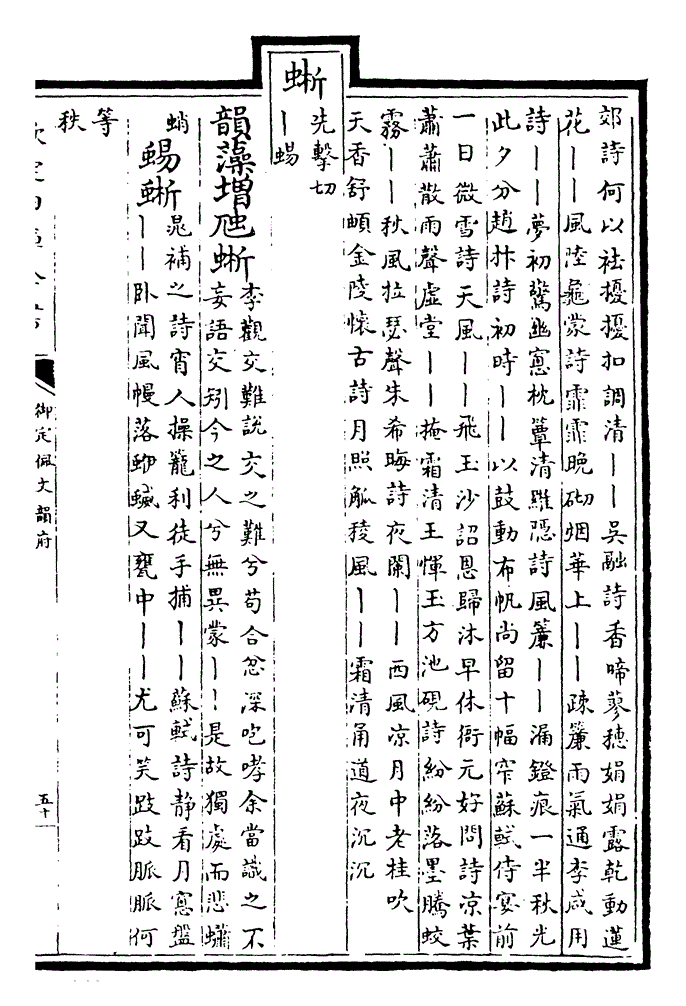 郊詩何以袪擾擾扣調清丨丨吳融詩香啼蓼穗娟娟露乾動蓮
花丨丨風陸龜蒙詩霏霏晚砌烟華上丨丨疎簾雨氣通李咸用
詩丨丨夢初驚幽窻枕簟清羅隱詩風簾丨丨漏鐙痕一半秋光
此夕分趙抃詩初時丨丨以鼓動布帆尚留十幅窄蘇軾侍宴前
一日微雪詩天風丨丨飛玉沙詔恩歸沐早休衙元好問詩凉葉
蕭蕭散雨聲虛堂丨丨掩霜清王惲玉方池硯詩紛紛落墨騰蛟
霧丨丨秋風拉瑟聲朱希晦詩夜闌丨丨西風凉月中老桂吹
天香舒頔金陵懷古詩月照觚稜風丨丨霜清甬道夜沉沉
蜥
先擊切
丨蜴
韻藻增虺蜥
李觀交難說交之難兮苟合忿深咆哮余當識之不
妄語交矧今之人兮無異蒙丨丨是故獨處而悲蠨
蛸
蜴蜥
晁補之詩宵人操寵利徒手捕丨丨蘇軾詩静看月窻盤
丨丨卧聞風幔落蛜蝛又甕中丨丨尤可笑跂跂脈脈何
等
秩
御定佩文韻府
五十